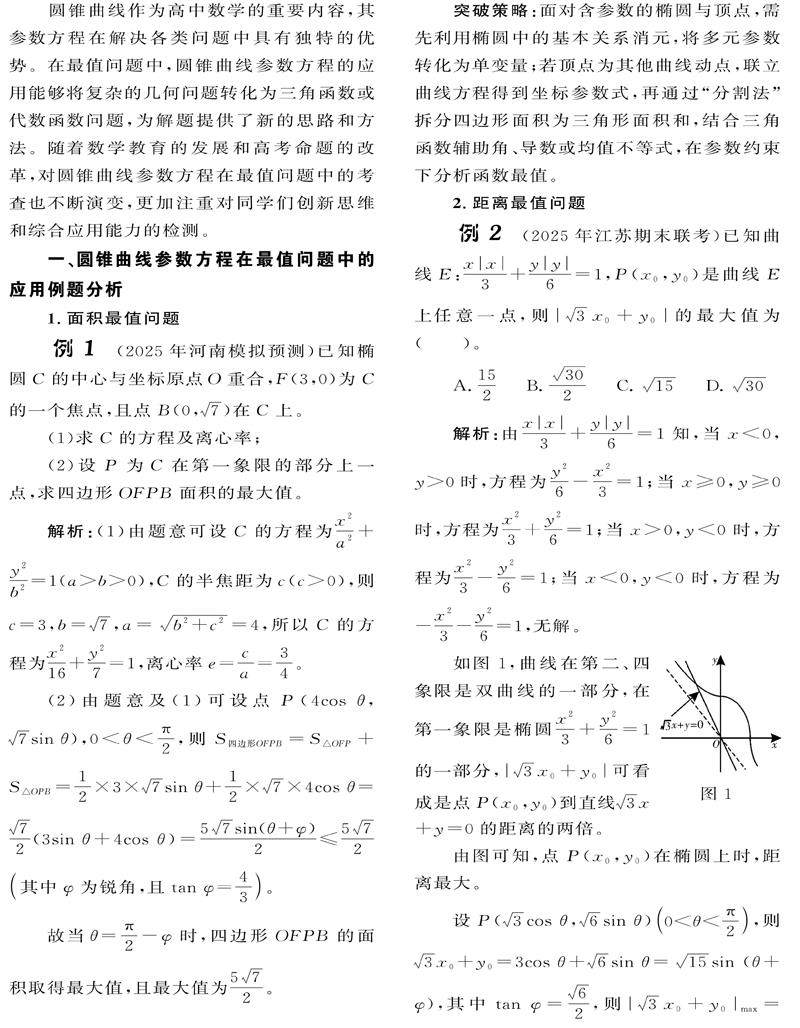 圆锥曲线作为高中数学的重要内容,其
参数方程在解决各类问题中具有独特的优
势。在最值问题中,圆锥曲线参数方程的应
用能够将复杂的几何问题转化为三角函数或
代数函数问题,为解题提供了新的思路和方
法。随着数学教育的发展和高考命题的改
革,对圆锥曲线参数方程在最值问题中的考
查也不断演变,更加注重对同学们创新思维
和综合应用能力的检测。
一、圆锥曲线参数方程在最值问题中的
应用例题分析
1. 面积最值问题
例 1 (2025 年河南模拟预测)已知椭
圆 C 的中心与坐标原点 O 重合,F(3,0)为 C
的一个焦点,且点 B(0,√7)在 C 上。
(1)求 C 的方程及离心率;
(2)设 P 为 C 在第一象限的部分上一
点,求四边形 OFPB 面积的最大值。
解析:(1)由题意可设 C 的方程为x²/a²+
y²/b²=1(a>b>0),C 的半焦距为 c(c>0),则
c=3,b=√7,a=√(b²+c²)=4,所以 C 的方
程为x²/16+y²/7=1,离心率 e=c/a=3/4。
(2)由题意及(1)可设点 P(4cos θ,
√7sin θ),0<θ<π/2,则 S四边形OFPB=S△OFP+
S△OPB=1/2×3×√7sin θ+1/2×√7×4cos θ=
√7/2(3sin θ+4cos θ)=5√7sin(θ+φ)/2≤5√7/2
(其中 φ 为锐角,且 tan φ=4/3)。
故当 θ=π/2-φ 时,四边形 OFPB 的面
积取得最大值,且最大值为5√7/2。
突破策略:面对含参数的椭圆与顶点,需
先利用椭圆中的基本关系消元,将多元参数
转化为单变量;若顶点为其他曲线动点,联立
曲线方程得到坐标参数式,再通过“分割法”
拆分四边形面积为三角形面积和,结合三角
函数辅助角、导数或均值不等式,在参数约束
下分析函数最值。
2. 距离最值问题
例 2 (2025 年江苏期末联考)已知曲
线 E:x|x|/3+y|y|/6=1,P(x₀,y₀)是曲线 E
上任意一点,则|√3x₀+y₀|的最大值为
( )。
A. 15/2 B. √30/2 C. √15 D. √30
解析:由x|x|/3+y|y|/6=1 知,当 x<0,
y>0 时,方程为y²/6-x²/3=1;当 x≥0,y≥0
时,方程为x²/3+y²/6=1;当 x>0,y<0 时,方
程为x²/3-y²/6=1;当 x<0,y<0 时,方程为
-x²/3-y²/6=1,无解。
如图 1,曲线在第二、四
象限是双曲线的一部分,在
第一象限是椭圆x²/3+y²/6=1
的一部分,|√3x₀+y₀|可看
成是点 P(x₀,y₀)到直线√3x
+y=0 的距离的两倍。
y
√3x+y=0
O
x
图 1
由图可知,点 P(x₀,y₀)在椭圆上时,距
离最大。
设 P(√3cos θ,√6sin θ)(0<θ<π/2),则
√3x₀+y₀=3cos θ+√6sin θ=√15sin (θ+
φ),其中 tan φ=√6/2,则|√3x₀+y₀|max=